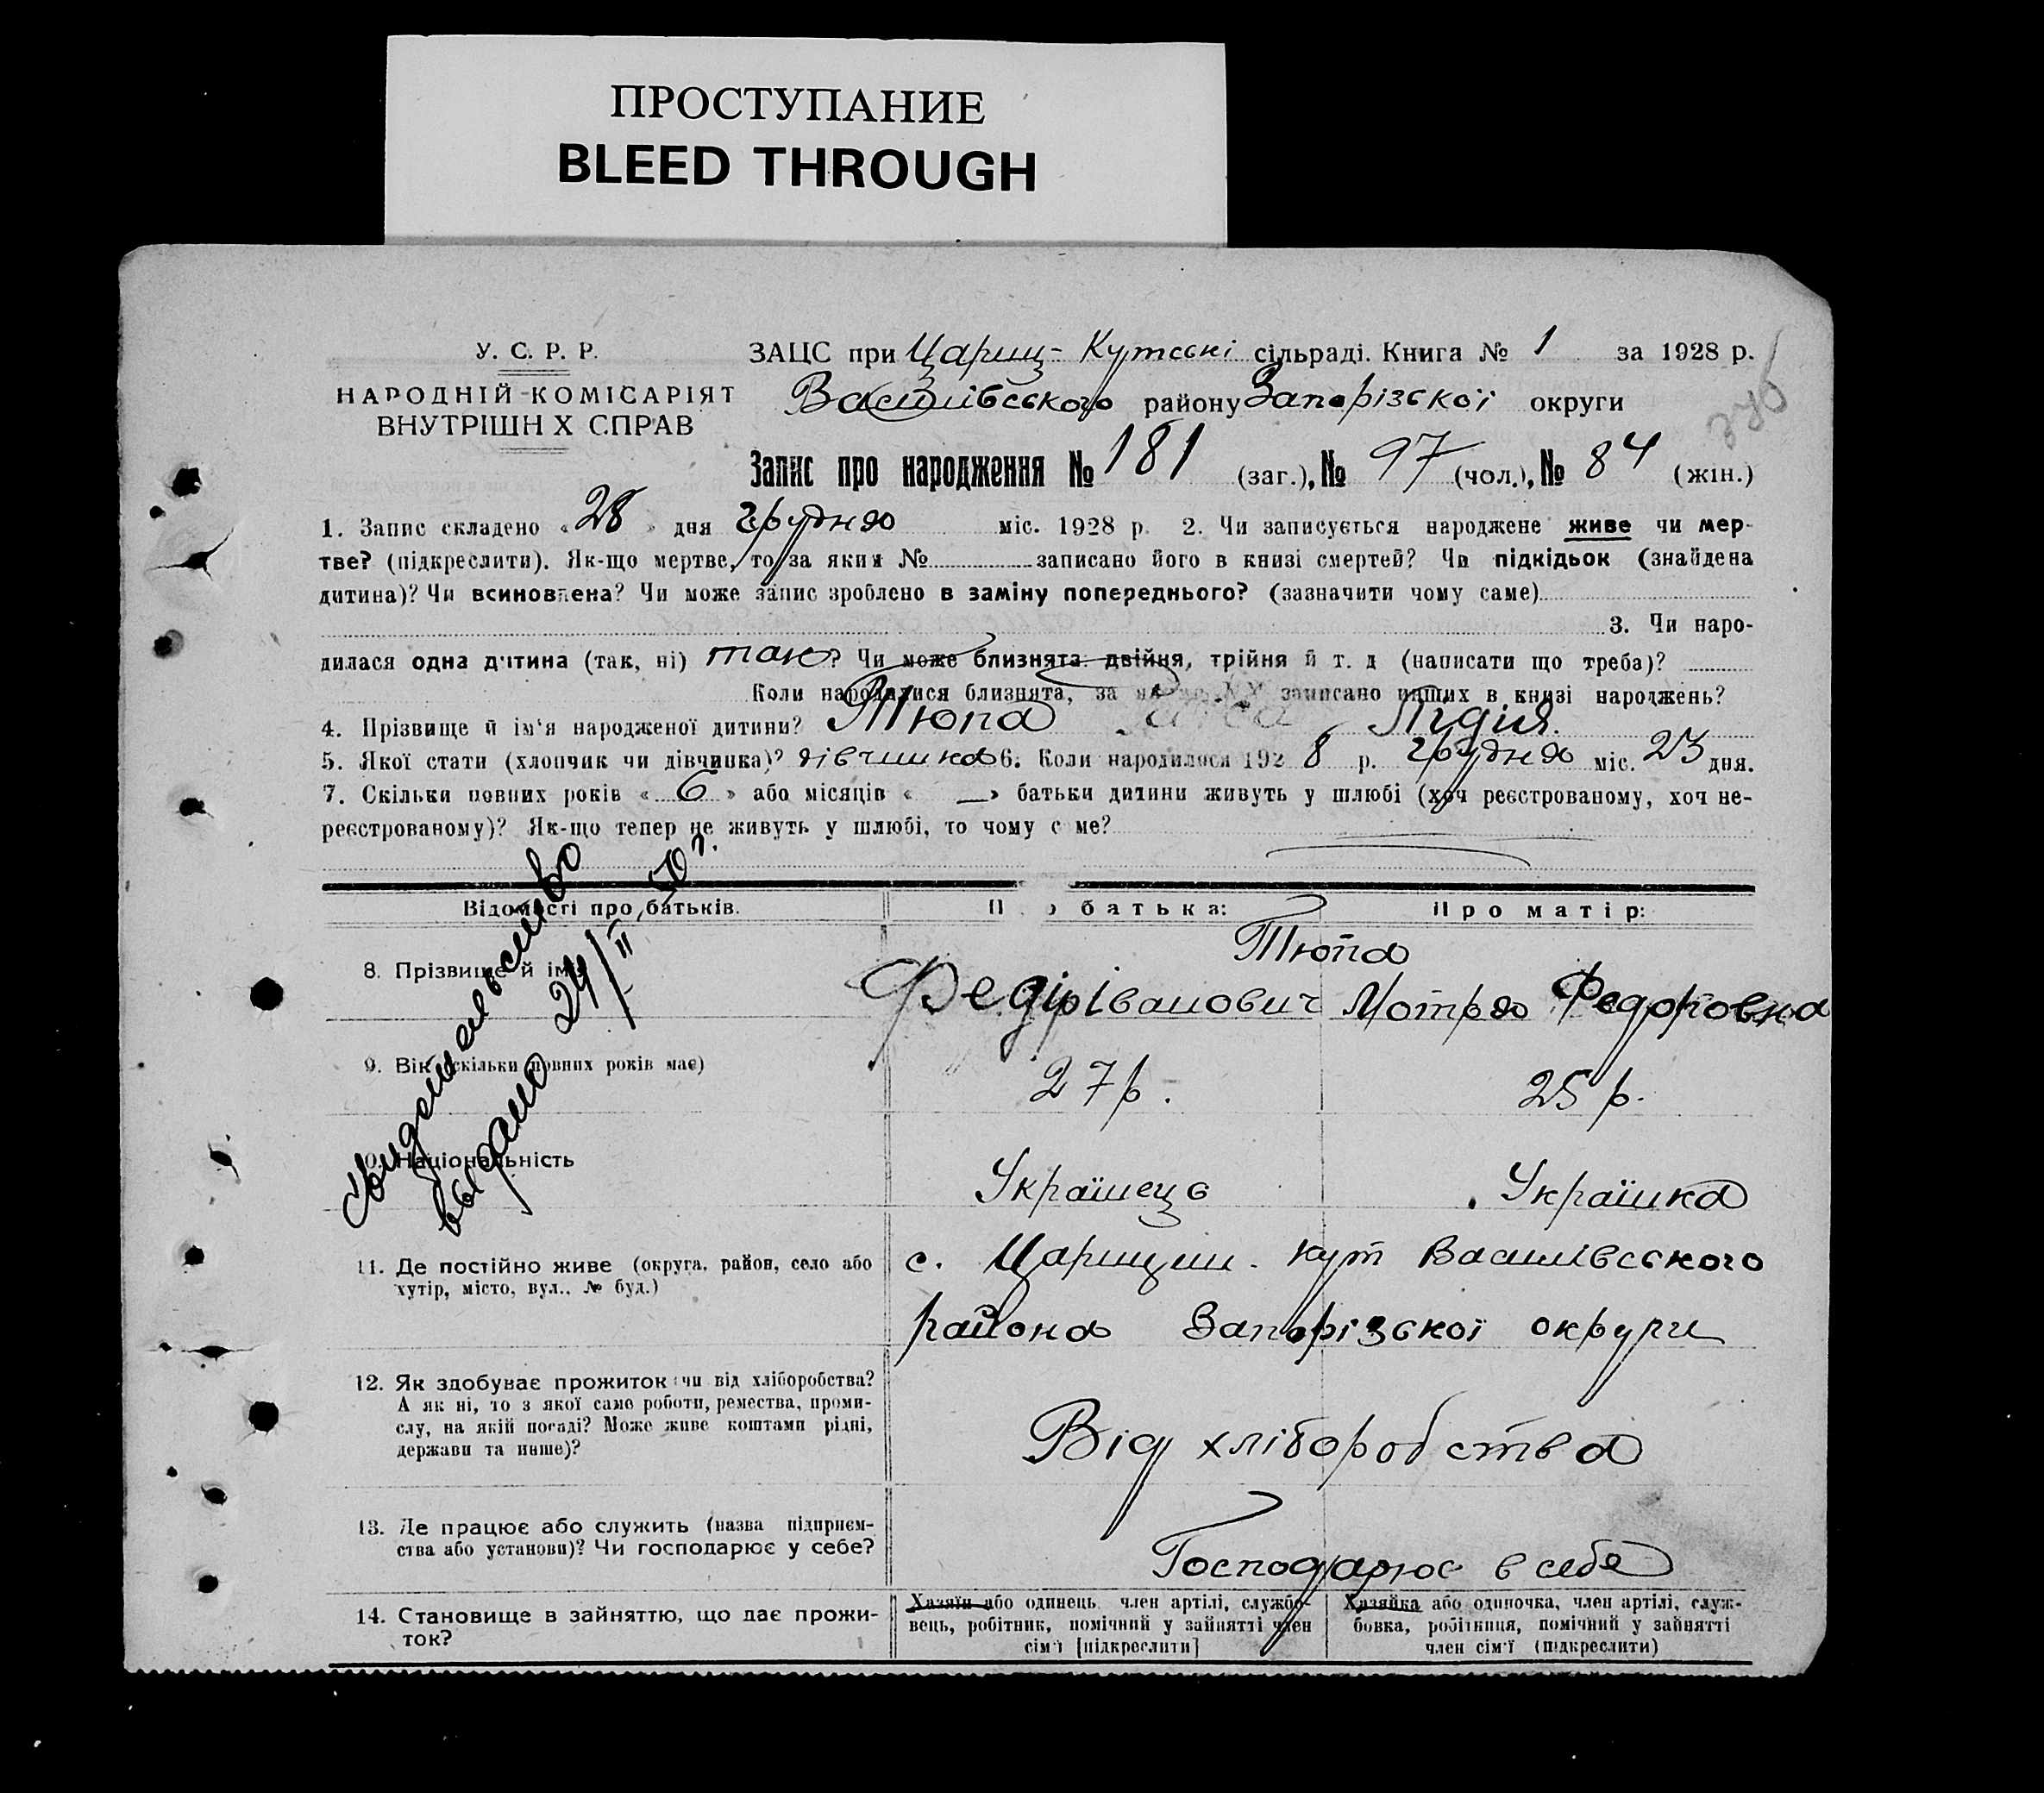 ПРОСТУПАНИЕ
BLEED THROUGH
У. С. Р. Р.
НАРОДНІЙ КОМІСАРІЯТ
ВНУТРІШН Х СПРАВ
ЗАЦС при Цариц-Кутській сільраді. Книга № 1 за 1928 р.
Василівського району Запорізської округи
Запис про народження № 181 (заг.), № 97 (чол.), № 84 (жін.)
1. Запис складено «28» дня грудня міс. 1928 р. 2. Чи записується народжене живе чи мер-
тве? (підкреслити). Як-що мертве, то за яким № записано його в книзі смертей? Чи підкідьок (знайдена
дитина)? Чи всиновлена? Чи може запис зроблено в заміну попереднього? (зазначити чому саме)
3. Чи наро-
дилася одна дитина (так, ні) так? Чи може близнята двійня, трійня й т. д (написати що треба)?
Коли народилися близнята, за записано инших в книзі народжень?
4. Прізвище й ім'я народженої дитини? Тюпа Лидия.
5. Якої стати (хлопчик чи дівчинка)? дівчинка 6. Коли народилося 1928 р. грудня міс. 23 дня.
7. Скільки повних років «6» або місяців «—» батьки дитини живуть у шлюбі (хоч реєстрованому, хоч не-
реєстрованому)? Як-що тепер не живуть у шлюбі, то чому с ме?
Відомості про батьків.
П о батька:
Про матір:
8. Прізвище й ім'я
Тюпа
Федір Іванович Мотря Федоровна
9. Вік (скільки повних років має)
27 р.
25 р.
10. Національність
Українець
Українка
Свидетельство
выдано 24/II 50 г.
11. Де постійно живе (округа, район, село або
хутір, місто, вул., № буд.)
с. Царицин. Кут Василівського
района Запорізської округи
12. Як здобуває прожиток чи від хліборобства?
А як ні, то з якої само роботи, ремества, проми-
слу, на якій посаді? Може живе коштами рідні,
держави та инше)?
Від хліборобства
13. Де працює або служить (назва підприєм-
ства або установи)? Чи господарює у себе?
Господарює в себе
14. Становище в зайняттю, що дає прожи-
ток?
Хазяїн або одинець член артілі, службо-
вець, робітник, помічний у зайнятті член
сім'ї [підкреслити]
Хазяйка або одиночка, член артілі, служ-
бовка, робітниця, помічний у зайнятті
член сім'ї (підкреслити)